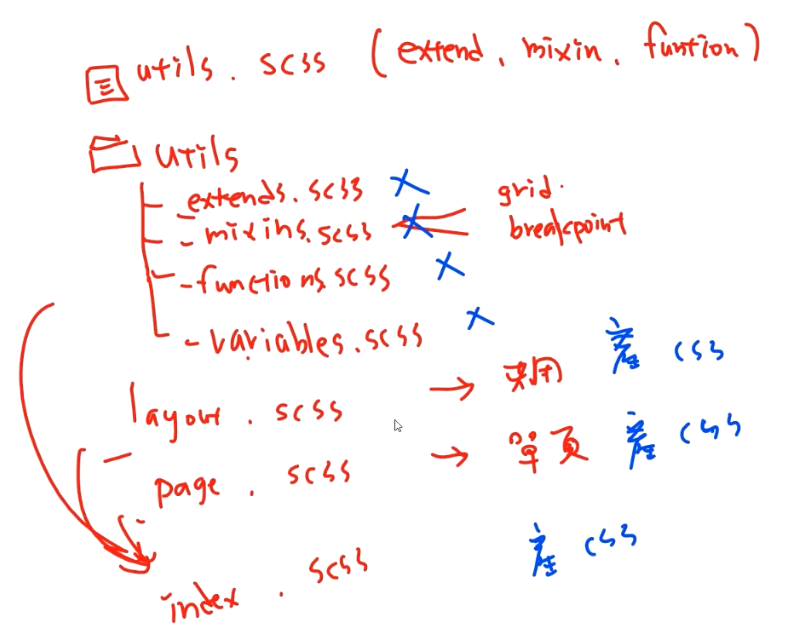 utils . scss ( extend , mixin , funtion )
utils
_extends.scss
grid.
- mixins.scss
breakpoint
-functions.scss
- variables.scss
layout . scss → 共用 產 css
page . scss → 單頁 產 css
index . scss 產 css